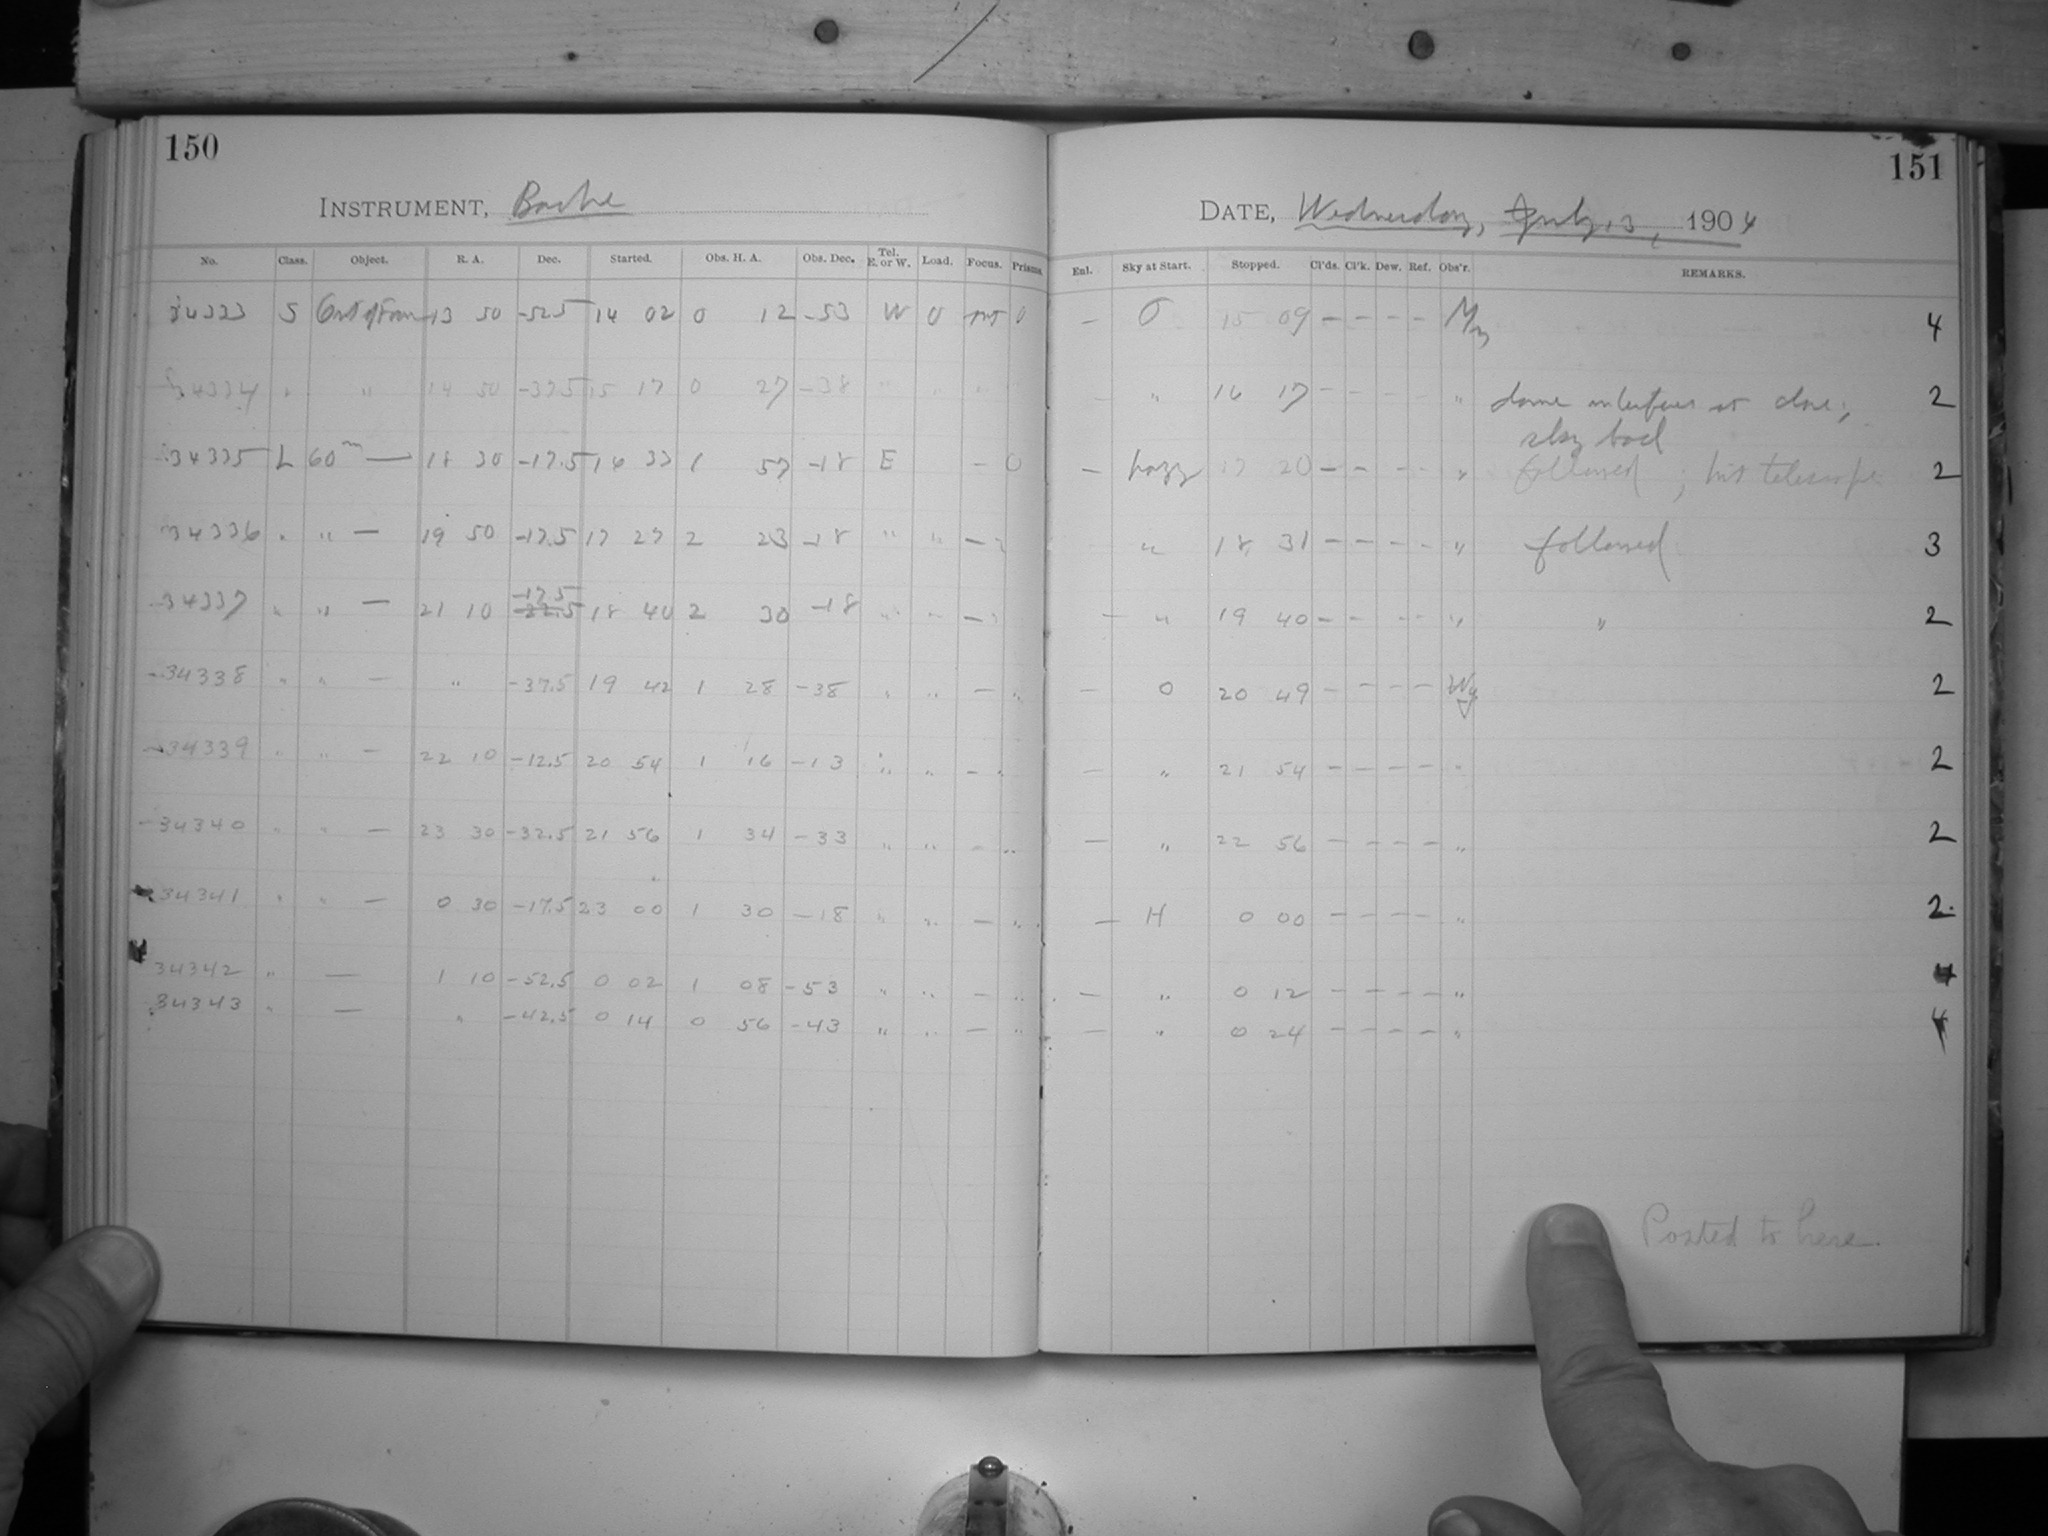 150
INSTRUMENT, Bache
No. Class. Object. R. A. Dec. Started. Obs. H. A. Obs. Dec. Tel. E. or W. Load. Focus. Prisms.
34333 S Out of Focus 13 50 -52.5 14 02 0 12 -53 W 0 0
34334 " " 14 50 -37.5 15 17 0 27 -38 "
34335 L 60m — 18 30 -17.5 16 33 1 57 -18 E - 0
34336 " " — 19 50 -17.5 17 27 2 23 -18 " " —
34337 " " — 21 10 -17.5 18 40 2 30 -18 " " —
34338 " " — " -37.5 19 42 1 28 -38 " " — "
34339 " " — 22 10 -12.5 20 54 1 16 -13 " " — "
34340 " " — 23 30 -32.5 21 56 1 34 -33 " " — "
34341 " " — 0 30 -17.5 23 00 1 30 -18 " " — "
34342 " — 1 10 -52.5 0 02 1 08 -53 " " — "
34343 " — " -42.5 0 14 0 56 -43 " " — "
151
DATE, Wednesday, July 13, 1904
Enl. Sky at Start. Stopped. Cl'ds. Cl'k. Dew. Ref. Obs'r. REMARKS.
— 0 15 09 — — — — My 4
— " 16 17 — — — — " dome interferes at close; 2
sky bad
— hazy 17 20 — — — — " followed; hit telescope 2
" 18 31 — — — — " followed 3
— " 19 40 — — — — " " 2
— 0 20 49 — — — — Wy 2
— " 21 54 — — — — " 2
— " 22 56 — — — — " 2
— H 0 00 — — — — " 2
— " 0 12 — — — — " 4
— " 0 24 — — — — " 4
Posted to here